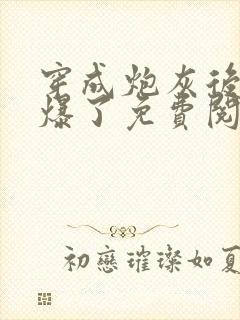 穿成炮灰後
爆了免費閱
初戀璀璨如夏